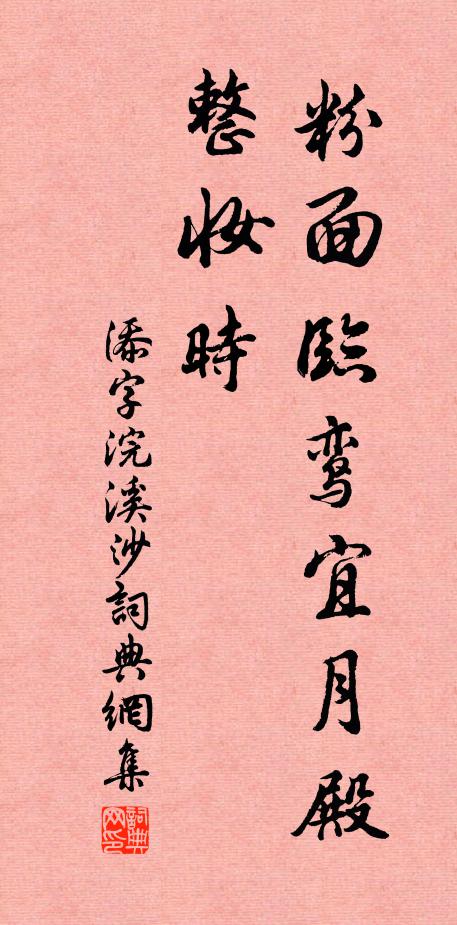 粉面臨鸾宜月殿
整妆時
添字浣溪沙詞典網集
詞典网印